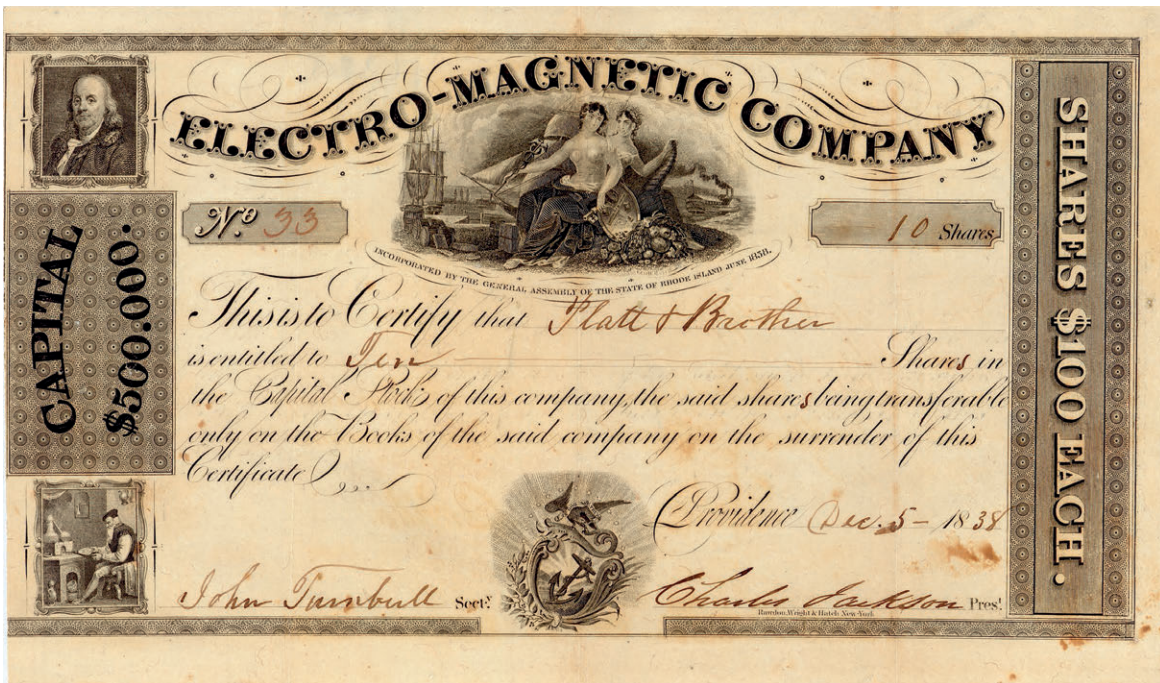 ELECTRO-MAGNETIC COMPANY
No. 33
10 Shares
INCORPORATED BY THE GENERAL ASSEMBLY OF THE STATE OF RHODE ISLAND JUNE 1838.
CAPITAL
$500.000.
SHARES $100 EACH.
This is to Certify that Platt & Brother
is entitled to Ten Shares in
the Capital Stock of this company, the said shares being transferable
only on the Books of the said company on the surrender of this
Certificate
Providence Dec. 5 - 1838
John Turnbull Secty.
Charles Jackson Prest.
Rawdon, Wright & Hatch New-York